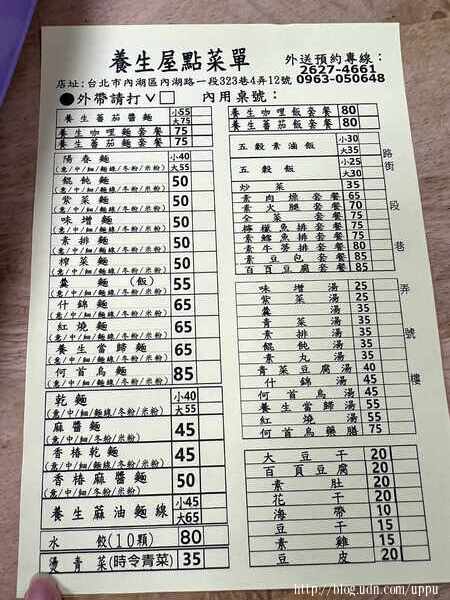 養生屋點菜單
外送預約專線：
2627-4661
0963-050648
店址：台北市內湖區內湖路一段323巷4弄12號
●外帶請打∨□ 內用桌號：
養生蕃茄醬麵 小55 大75
養生咖哩麵套餐 75
養生蕃茄麵套餐 75
陽春麵 小40
(意/中/細/麵線/冬粉/米粉) 大55
餛飩麵 50
(意/中/細/麵線/冬粉/米粉)
紫菜麵 50
(意/中/細/麵線/冬粉/米粉)
味增麵 50
(意/中/細/麵線/冬粉/米粉)
素排麵 50
(意/中/細/麵線/冬粉/米粉)
榨菜麵 50
(意/中/細/麵線/冬粉/米粉)
羹麵(飯) 55
(意/中/細/麵線/冬粉/米粉)
什錦麵 65
(意/中/細/麵線/冬粉/米粉)
紅燒麵 65
(意/中/細/麵線/冬粉/米粉)
養生當歸麵 65
(意/中/細/麵線/冬粉/米粉)
何首烏麵 85
(意/中/細/麵線/冬粉/米粉)
乾麵 小40
(意/中/細/麵線/冬粉/米粉) 大55
麻醬麵 45
(意/中/細/麵線/冬粉/米粉)
香椿乾麵 45
(意/中/細/麵線/冬粉/米粉)
香椿麻醬麵 50
(意/中/細/麵線/冬粉/米粉)
養生蔴油麵線 小45 大65
水餃(10顆) 80
燙青菜(時令青菜) 35
養生咖哩飯套餐 80
養生蕃茄飯套餐 80
五穀素油飯 小30 大35
五穀飯 小25 大30
炒菜 35
素肉燥套餐 65
素火腿套餐 70
全菜套餐 75
檸檬魚排套餐 75
素鱈魚排套餐 75
素牛蒡排套餐 80
素豆包套餐 85
百頁豆腐套餐 85
味增湯 25
紫菜湯 25
羹湯 35
青菜湯 35
素排湯 35
餛飩湯 35
素丸湯 35
青菜豆腐湯 40
什錦湯 45
何首烏湯 55
養生當歸湯 55
紅燒湯 55
何首烏藥膳 75
大豆干 20
百頁豆腐 20
素肚 20
花干 20
海帶 10
豆干 15
素雞 15
豆皮 20
路
街
段
巷
弄
號
樓
http://blog.udn.com/uppu